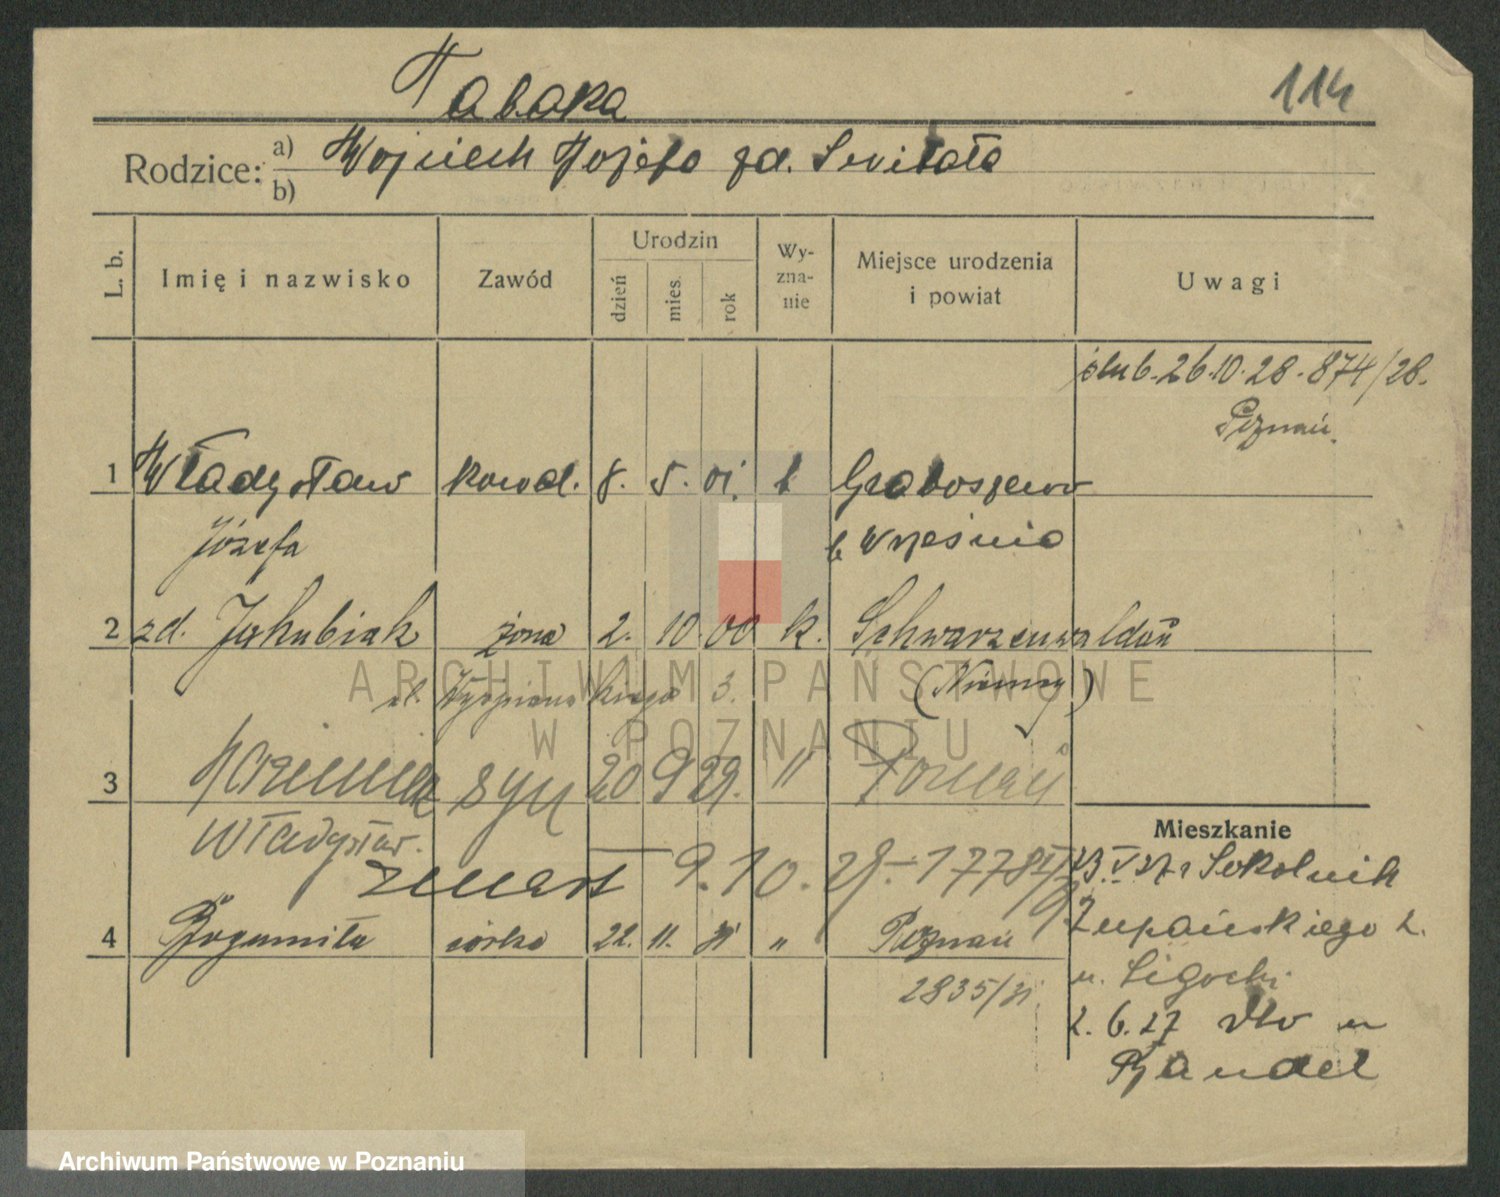 114
Tabaka
Rodzice: a) Wojciech Józefa zd. Świtała
b)
L. b. Imię i nazwisko Zawód Urodzin dzień mies. rok Wy-zna-nie Miejsce urodzenia i powiat Uwagi
ślub. 26.10.28. 874/28.
Poznań.
1 Władysław kowal. 8. 5. 01. k Graboszewo
Józefa k Września
2 zd. Jakubiak żona 2. 10. 00 k. Schwarzenwaldau
ul. Wyspiańskiego 3. (Niemcy)
3 Kazimierz syn 20 9 29. " Poznań
Władysław.
zmarł 9.10.29. - 1778
4 Bogumiła córka 22. 11. 31 " Poznań
2835/31
Mieszkanie
Sokolnik
Żupańskiego 2.
u. Ligocki
2.6.27 u
Bandel
ARCHIWUM PAŃSTWOWE
W POZNANIU
Archiwum Państwowe w Poznaniu